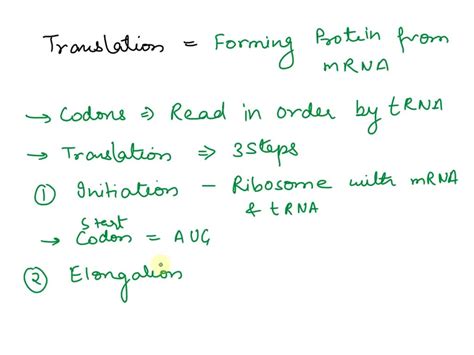 Translation = Forming Protein from
mRNA
→ Codons ⇒ Read in order by tRNA
→ Translation ⇒ 3 Steps
① Initiation - Ribosome with mRNA
& tRNA
Start
→ Codon = AUG
② Elongation